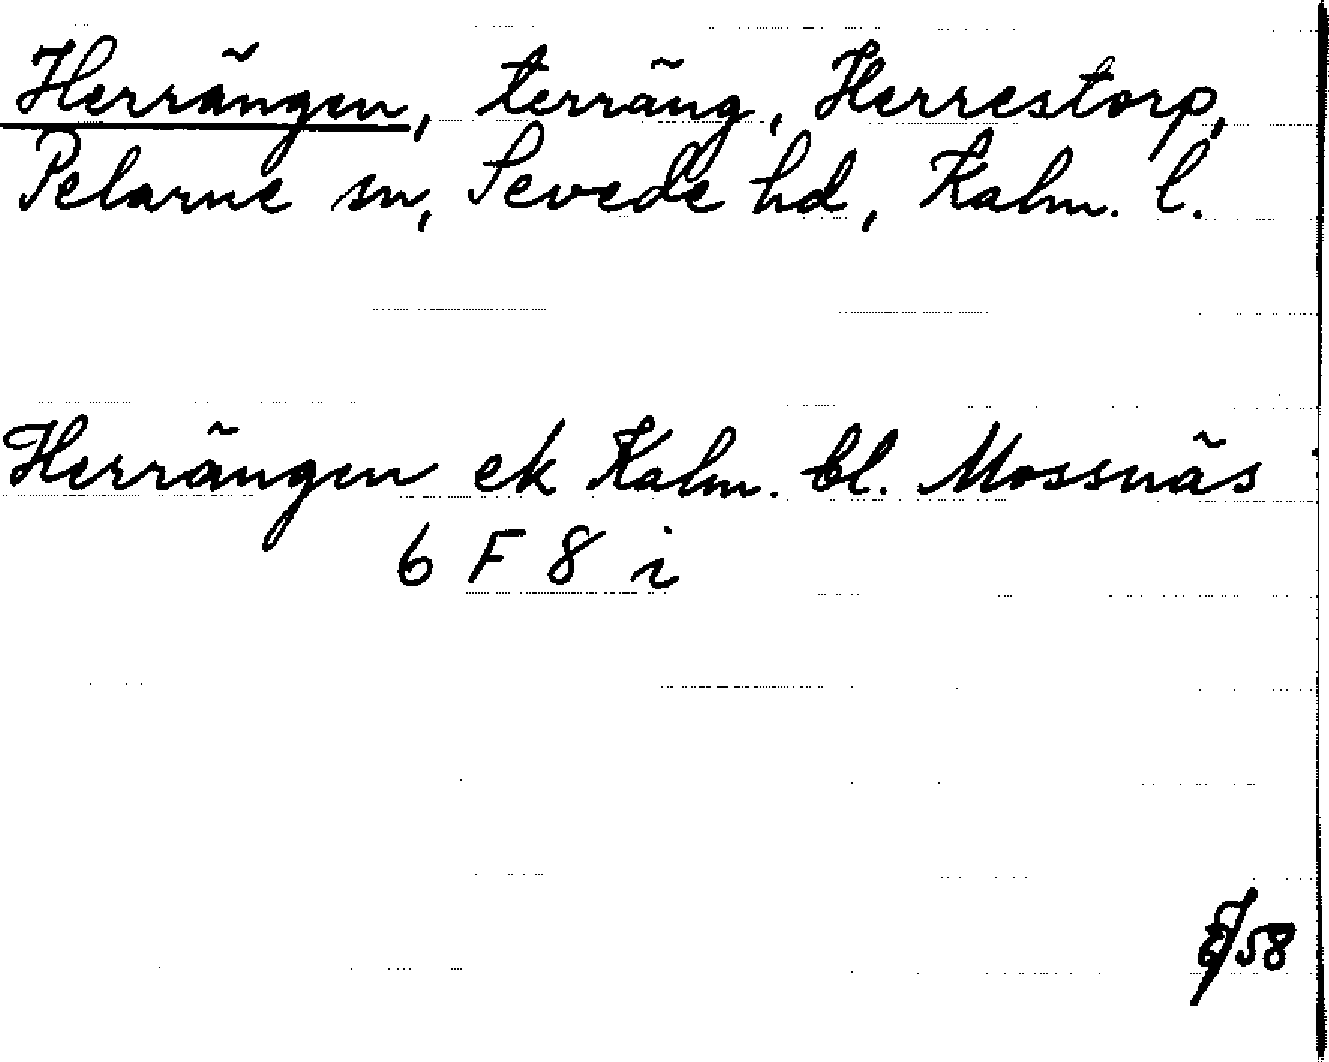 Herrängen, terräng, Herrestorp,
Pelarne sn, Sevede hd, Kalm. l.
Herrängen ek Kalm. bl. Mossnäs
6 F 8 i
58